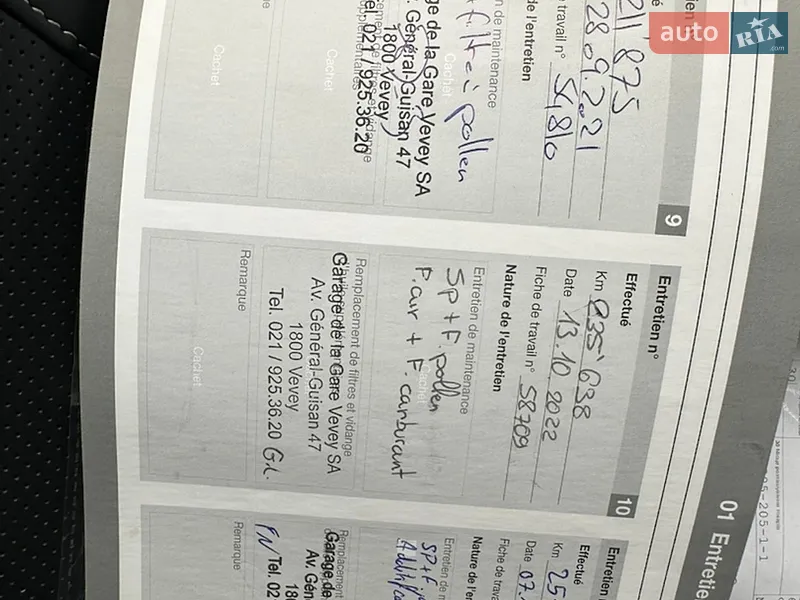 auto RIA .com
01 Entretie
9
211'875
28.09.2021
travail n° 54810
de l'entretien
n de maintenance
filtre à pollen
ge de la Gare Vevey SA
. Général-Guisan 47
1800 Vevey
el. 021 / 925.36.20
Cachet
Cachet
Cachet
Entretien n° 10
Effectué
Km 235'638
Date 13.10.2022
Fiche de travail n° 58709
Nature de l'entretien
Entretien de maintenance
Sp + F. pollen
F. air + F. carburant
Cachet
Remplacement de filtres et vidange
Garage de la Gare Vevey SA
Av. Général-Guisan 47
1800 Vevey
Tel. 021 / 925.36.20 G.L.
Remarque
Cachet
Entretien
Effectué
Km 25
Date 07.
Fiche de trava
Nature de l'en
Entretien de m
SP+F.
Additif
Remplacement
Garage de
Av. Gén
180
Tel. 02
Remarque
PN
05-205-1-1